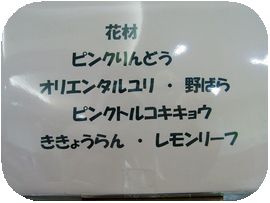 花材
ピンクりんどう
オリエンタルユリ・野ばら
ピンクトルコキキョウ
ききょうらん・レモンリーフ